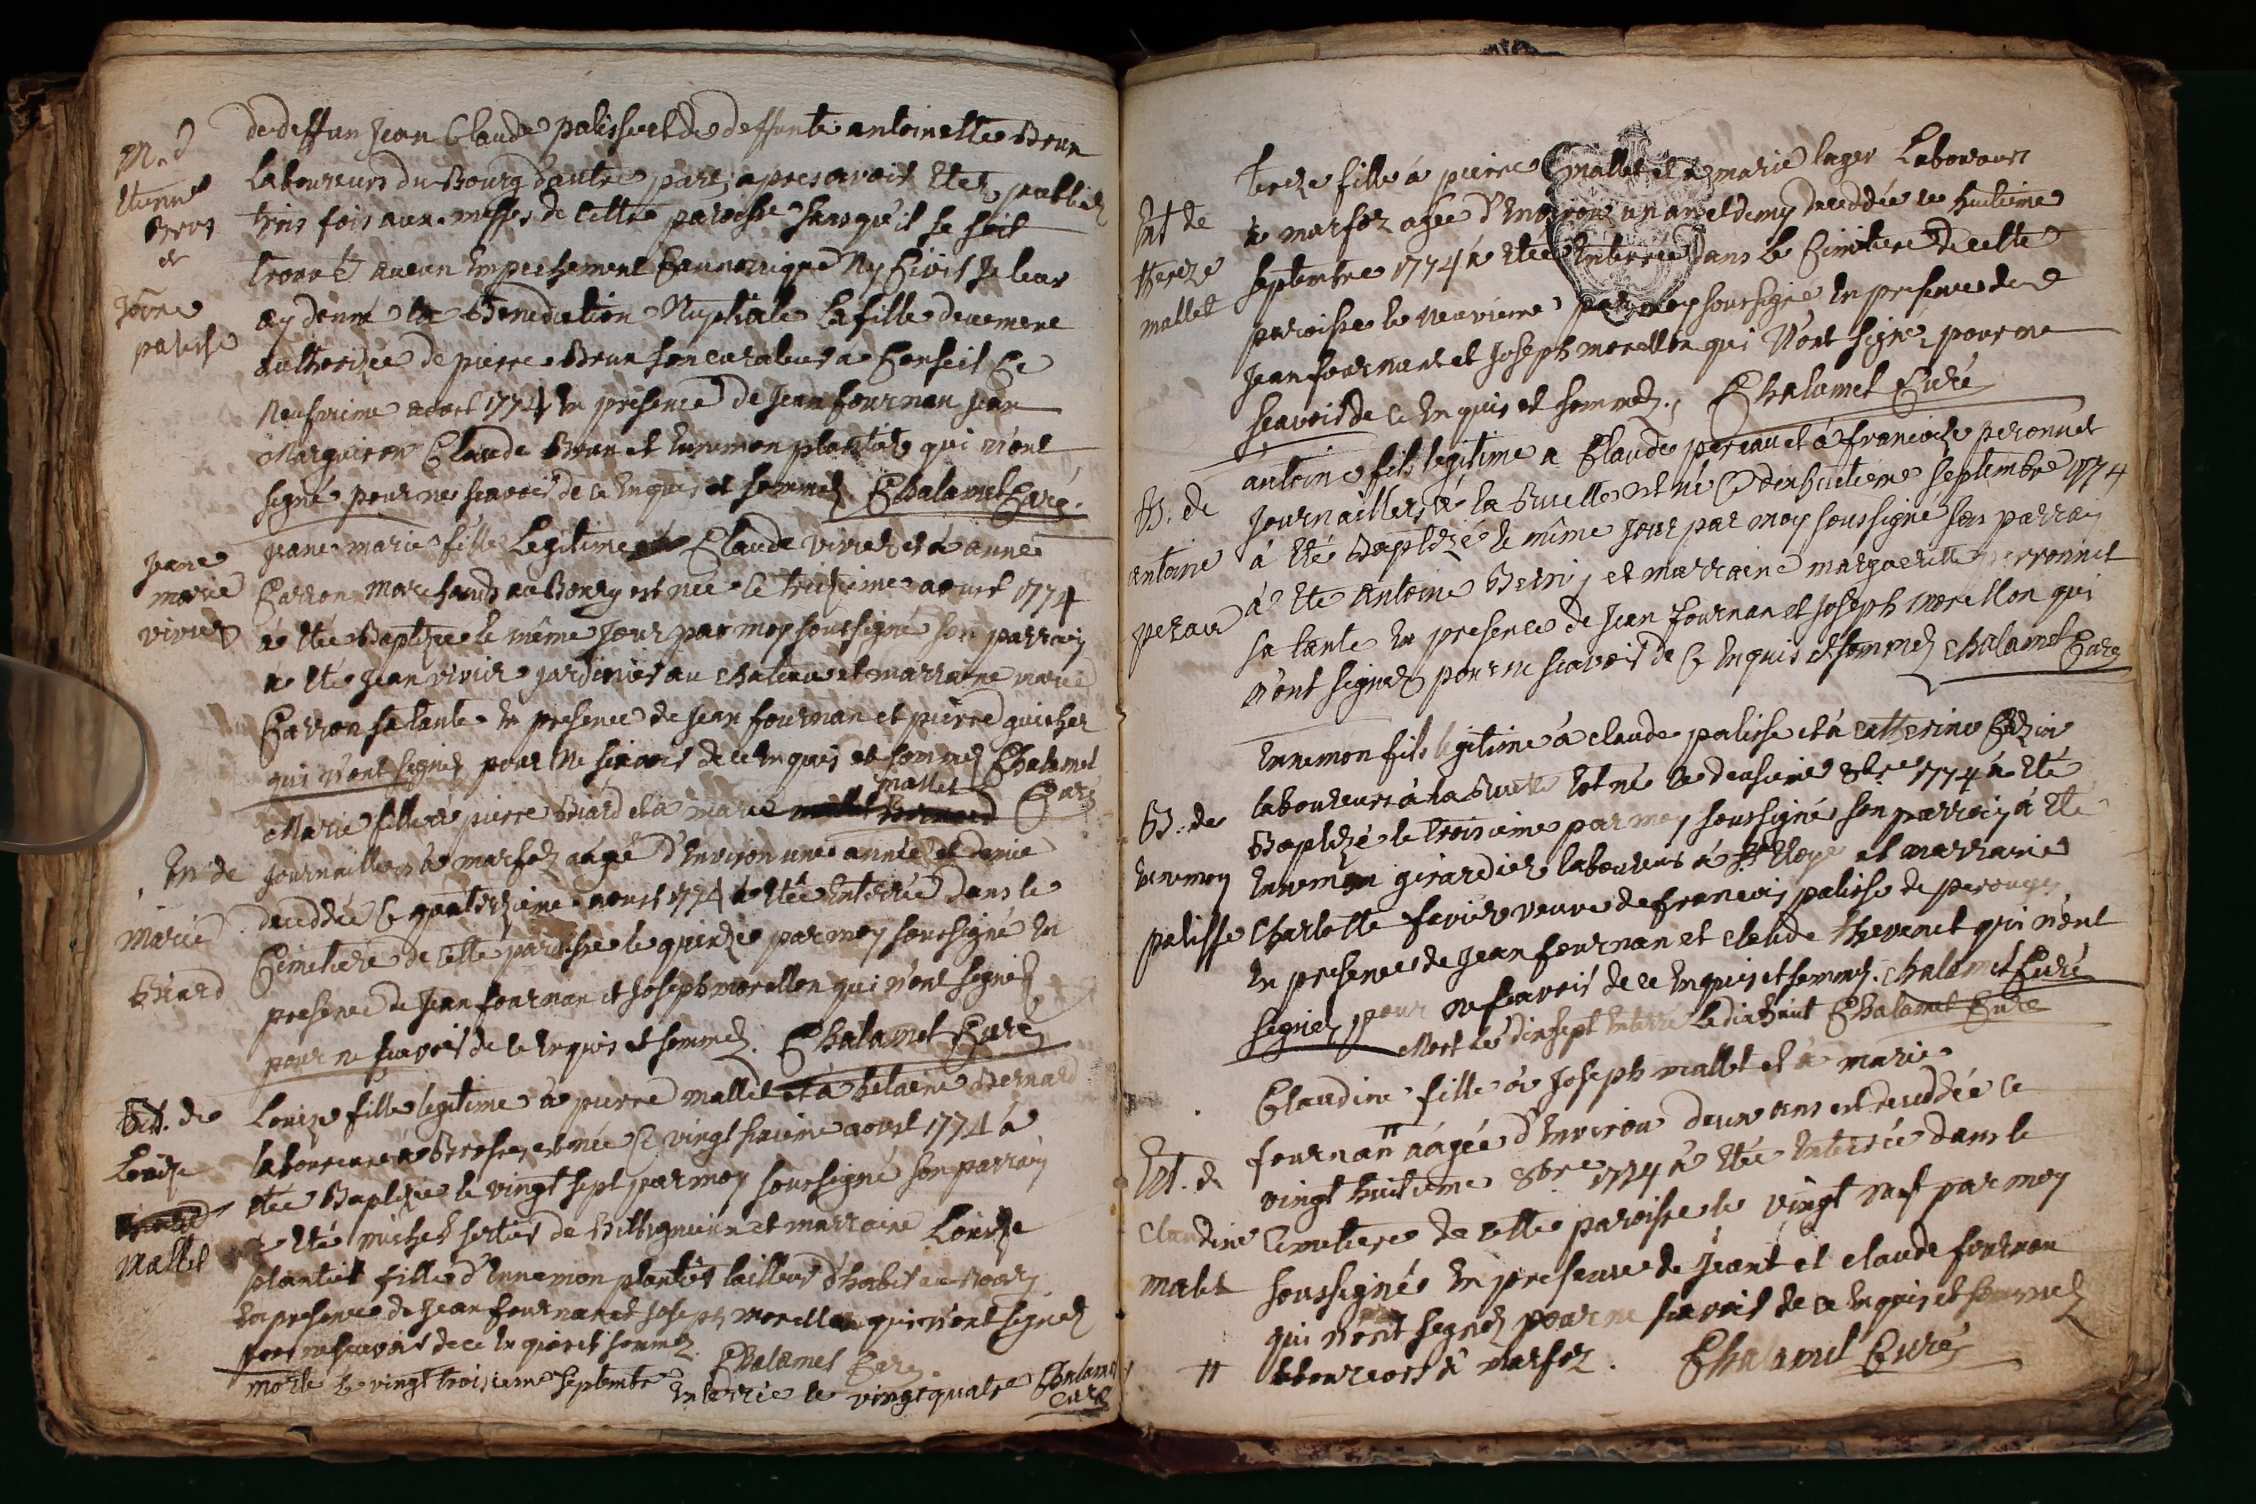 M. d
Etienne
Brun
et
Jeanne
palisse
de deffun Jean Claude palisse et de deffunte antoinette Brun
Laboureurs du Bourg d'autre part, apres avoir etez publiez
trois fois aux messes de cette paroisse sans qu'il se soit
trouvé aucun Empeschement Cannonique Ny Civil Je leur
ay donné la Benediction Nuptiale La fille deuement
authorizée de pierre Brun son curateur a Conseil Ce
Neufvieme aoust 1774 En presence de Jean fournan Jean
Marguiron Claude Brun et Ennemon plantier qui n'ont
signé pour ne scavoir de ce Enquis et sommez. Chalamet Curé.
Jeane
marie
vivier
Jeane marie fille Legitime à Claude vivier et à anne
Carron marchands au Bourg est née le treizieme aoust 1774
à etée Baptizée le même Jour par moy soussigné son parrain
a eté Jean vivier jardinier au chateau et marraine marie
Carron sa tante en presence de Jean fournan et pierre guicher
qui n'ont signez pour Ne scavoir de ce enquis et sommez Chalamet
Curé
En de
marie
Briard
mallet
Marie fille à pierre Briard et à marie Bernard
Journailler à marfoz aagé d'Environ une année et demie
decedée Ce quatorzieme aoust 1774 à etée Enterrée dans le
Cimetiere de cette paroisse le quinze par moy soussigné En
presence de Jean fournan et Joseph morellon qui n'ont signez
pour ne scavoir de ce Enquis et sommez. Chalamet Curé
Bt. de
Louize
Mallet
Louize fille legitime à pierre mallet et à helaine Bernard
laboureurs à Brosses est née Ce vingt sixieme aoust 1774 à
etée Baptizée le vingt sept par moy soussigné son parrain
a eté michel sertier de Billignieux et marraine Louize
plantier fille d'Ennemon plantier tailleur d'habit au Bourg
En presence de Jean fournan et Joseph morellon qui n'ont signez
pour ne scavoir de ce Enquis et sommez
Chalamet Curé
morte le vingt troisieme septembre Enterrée le vingt quatre Chalamet
Curé
Ent de
thereze
mallet
Tereze fille à pierre mallet et à marie luger Laboureurs
à marfoz agée d'Environ un an et demy decedée le huitieme
septembre 1774 à etée Enterrée dans Le Cimitiere de cette
paroisse le neuvieme par moy soussigné En presence de
Jean fournan et Joseph morellon qui N'ont signez pour ne
scavoir de ce Enquis et sommez. Chalamet Curé
B. de
antoine
perau
antoine fils legitime a Claude perau et à francoize peronnet
Journaillers à la Ruelle est né Ce dixhuitieme septembre 1774
à eté Baptizé le même Jour par moy soussigné son parrain
a eté antoine Berri, et marraine marguerite perronnet
sa tante En presence de Jean fournan et Joseph morellon qui
n'ont signez pour ne scavoir de Ce Enquis et sommez Chalamet Curé
B. de
Ennemon
palisse
Ennemon fils legitime à claude palisse et à catterine
laboureurs à la Ruelle est né le deusieme 8bre 1774 à eté
Baptizé le troisieme par moy soussigné son parrain à eté
Ennemon girardier laboureur à St Eloye et marraine
Charlotte favier veuve de francois palisse de perouges
En presence de Jean fournan et claude thevenet qui n'ont
signez pour ne scavoir de ce Enquis et sommez. Chalamet Curé
Mort Le dixsept Enterré Le dixhuit Chalamet Curé
Et. de
Claudine
malet
Claudine fille à Joseph mallet et à marie
fournan " aagée d'Environ deux ans est decedée ce
vingt huitieme 8bre 1774 à etée Enterrée dans le
Cimetiere de cette paroisse le vingt neuf par moy
soussigné En presence de Jean et claude fournan
qui n'ont signez pour ne scavoir de ce Enquis et sommez
" laboureurs à marfoz. Chalamet Curé